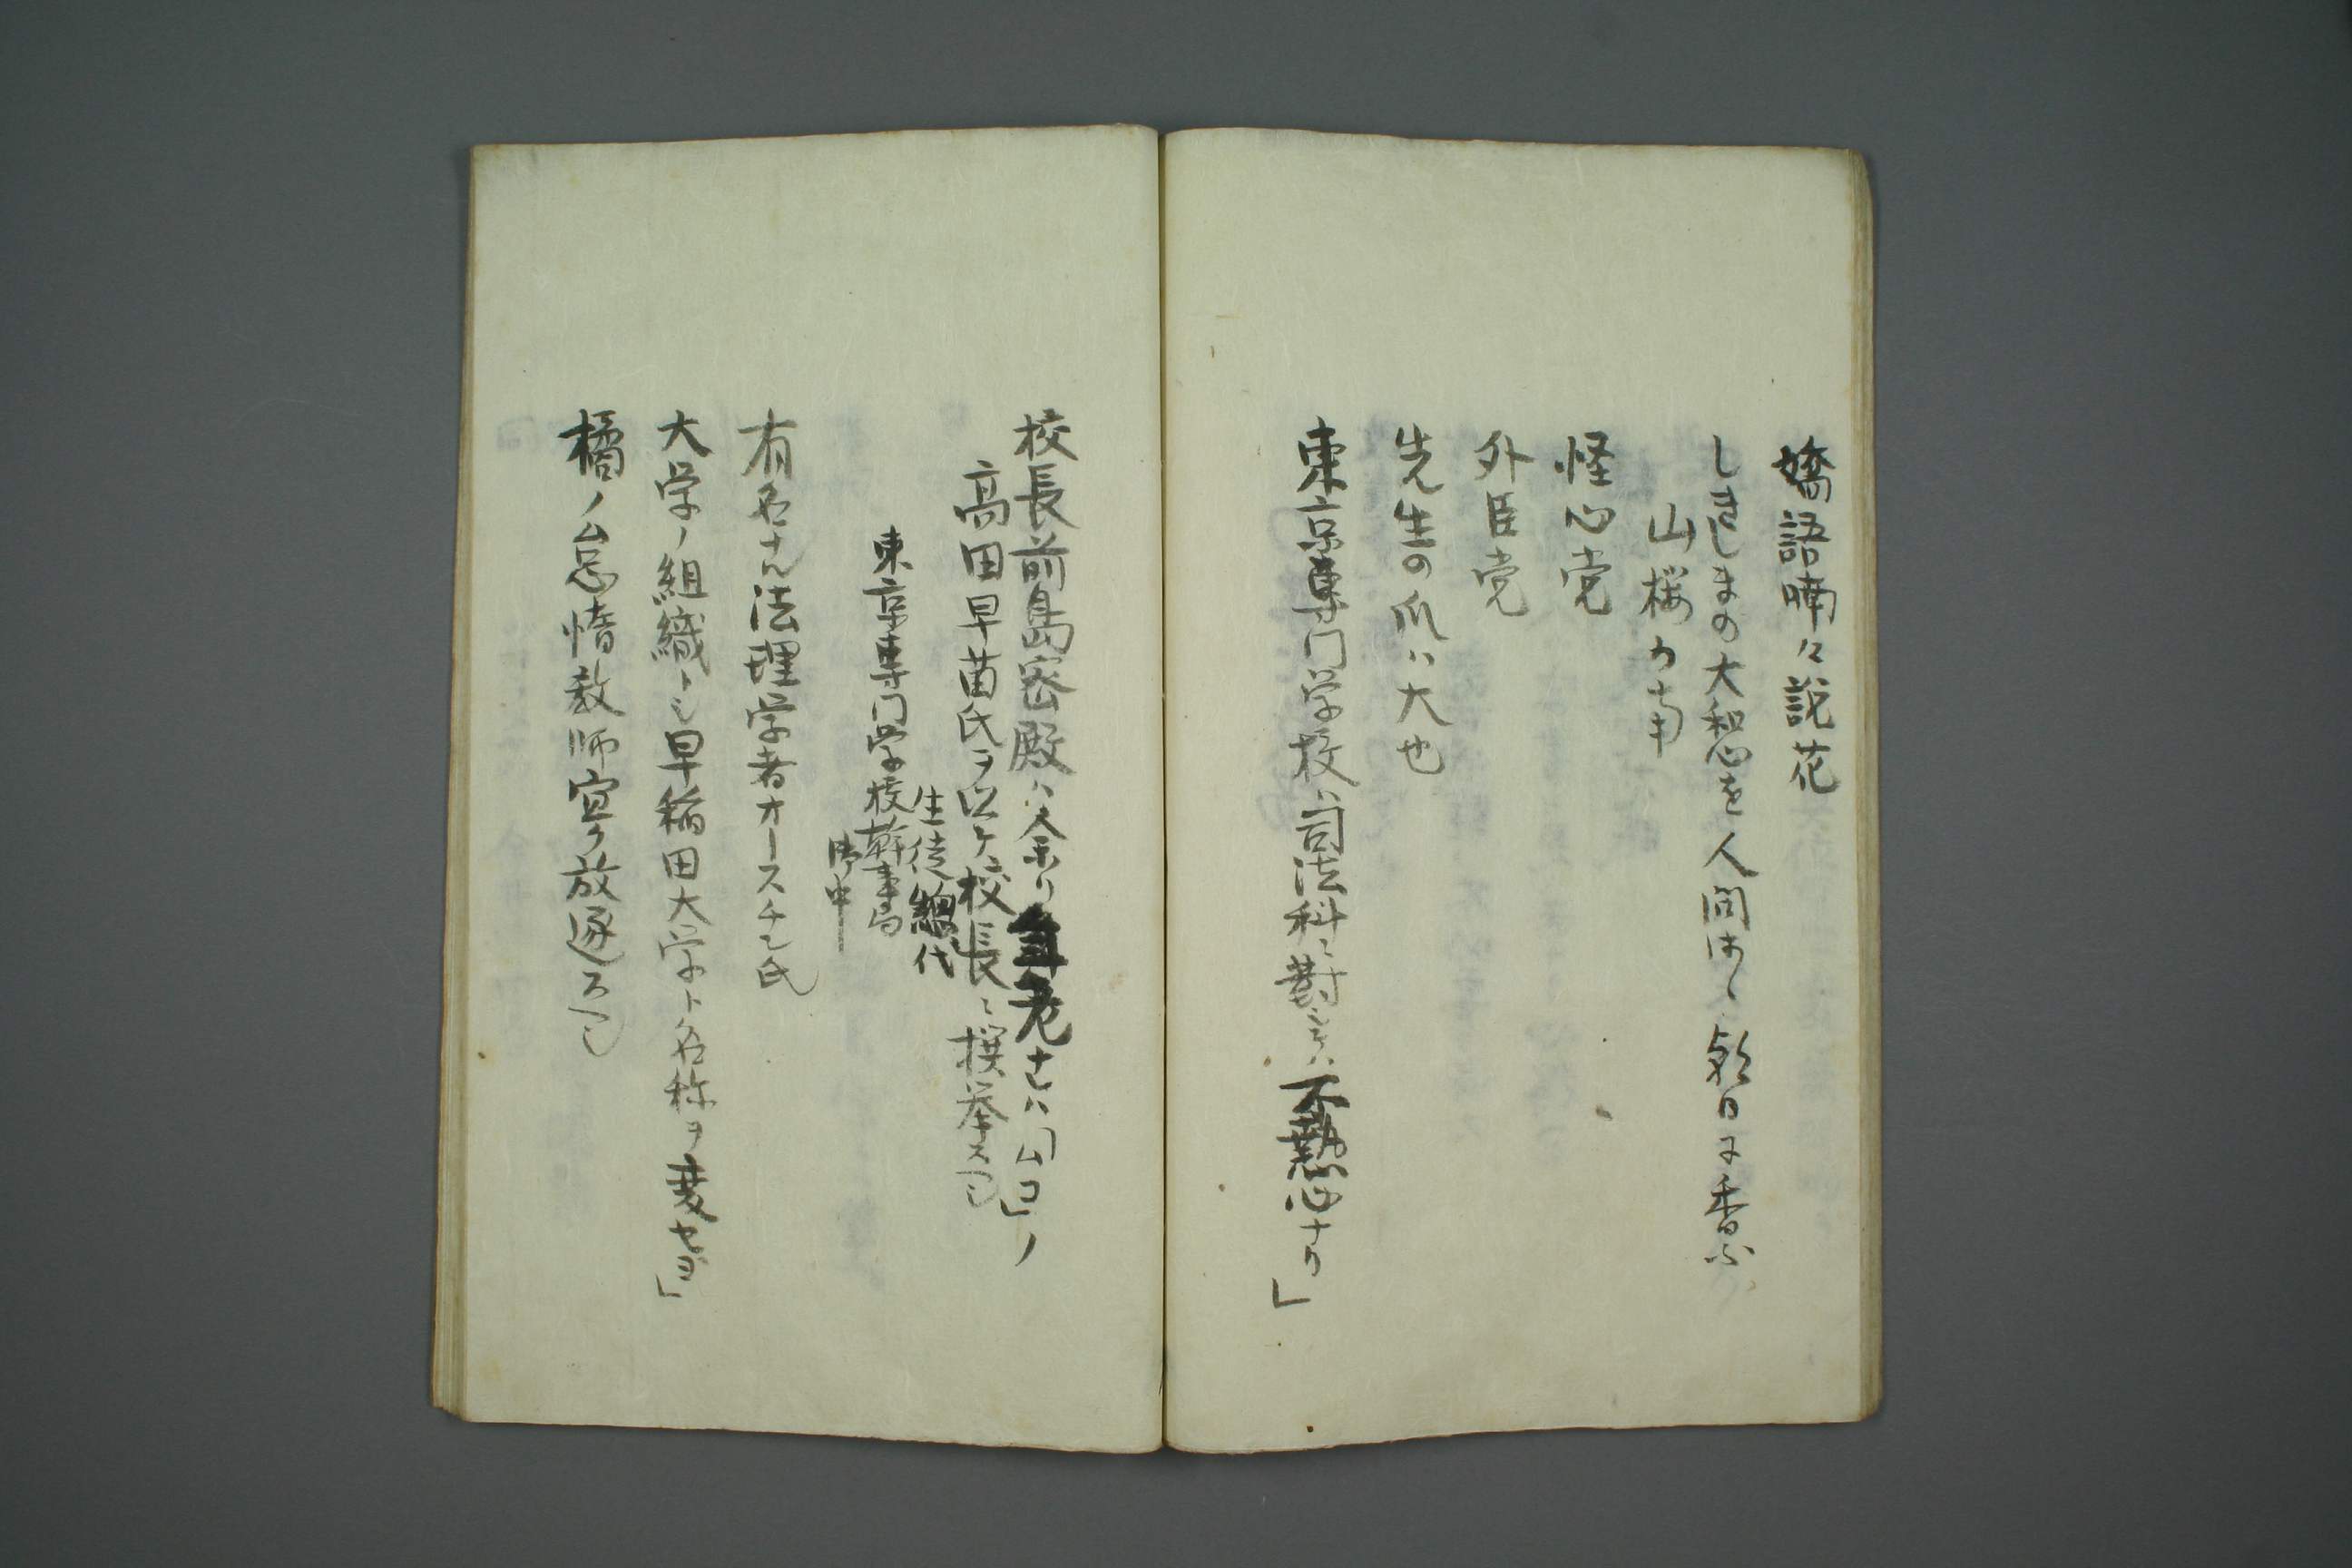 嬌語喃々説花
しきしまの大和心を人問はゝ朝日に香ふ
山桜か南
怪心党
外臣党
先生の爪ハ大也
東京専門学校ハ司法科ニ対シテハ不熱心ナリ」
校長前島密殿ハ余リ年老ナレハ
高田早苗氏ヲ以テ校長ニ撰挙スベシ
生徒總代
東京専門学校幹事局
御中
有名ナル法理学者オースチン氏
大学ノ組織トシ早稲田大学ト名称ヲ変セヨ」
橘ノ怠惰教師宜ク放逐スベシ